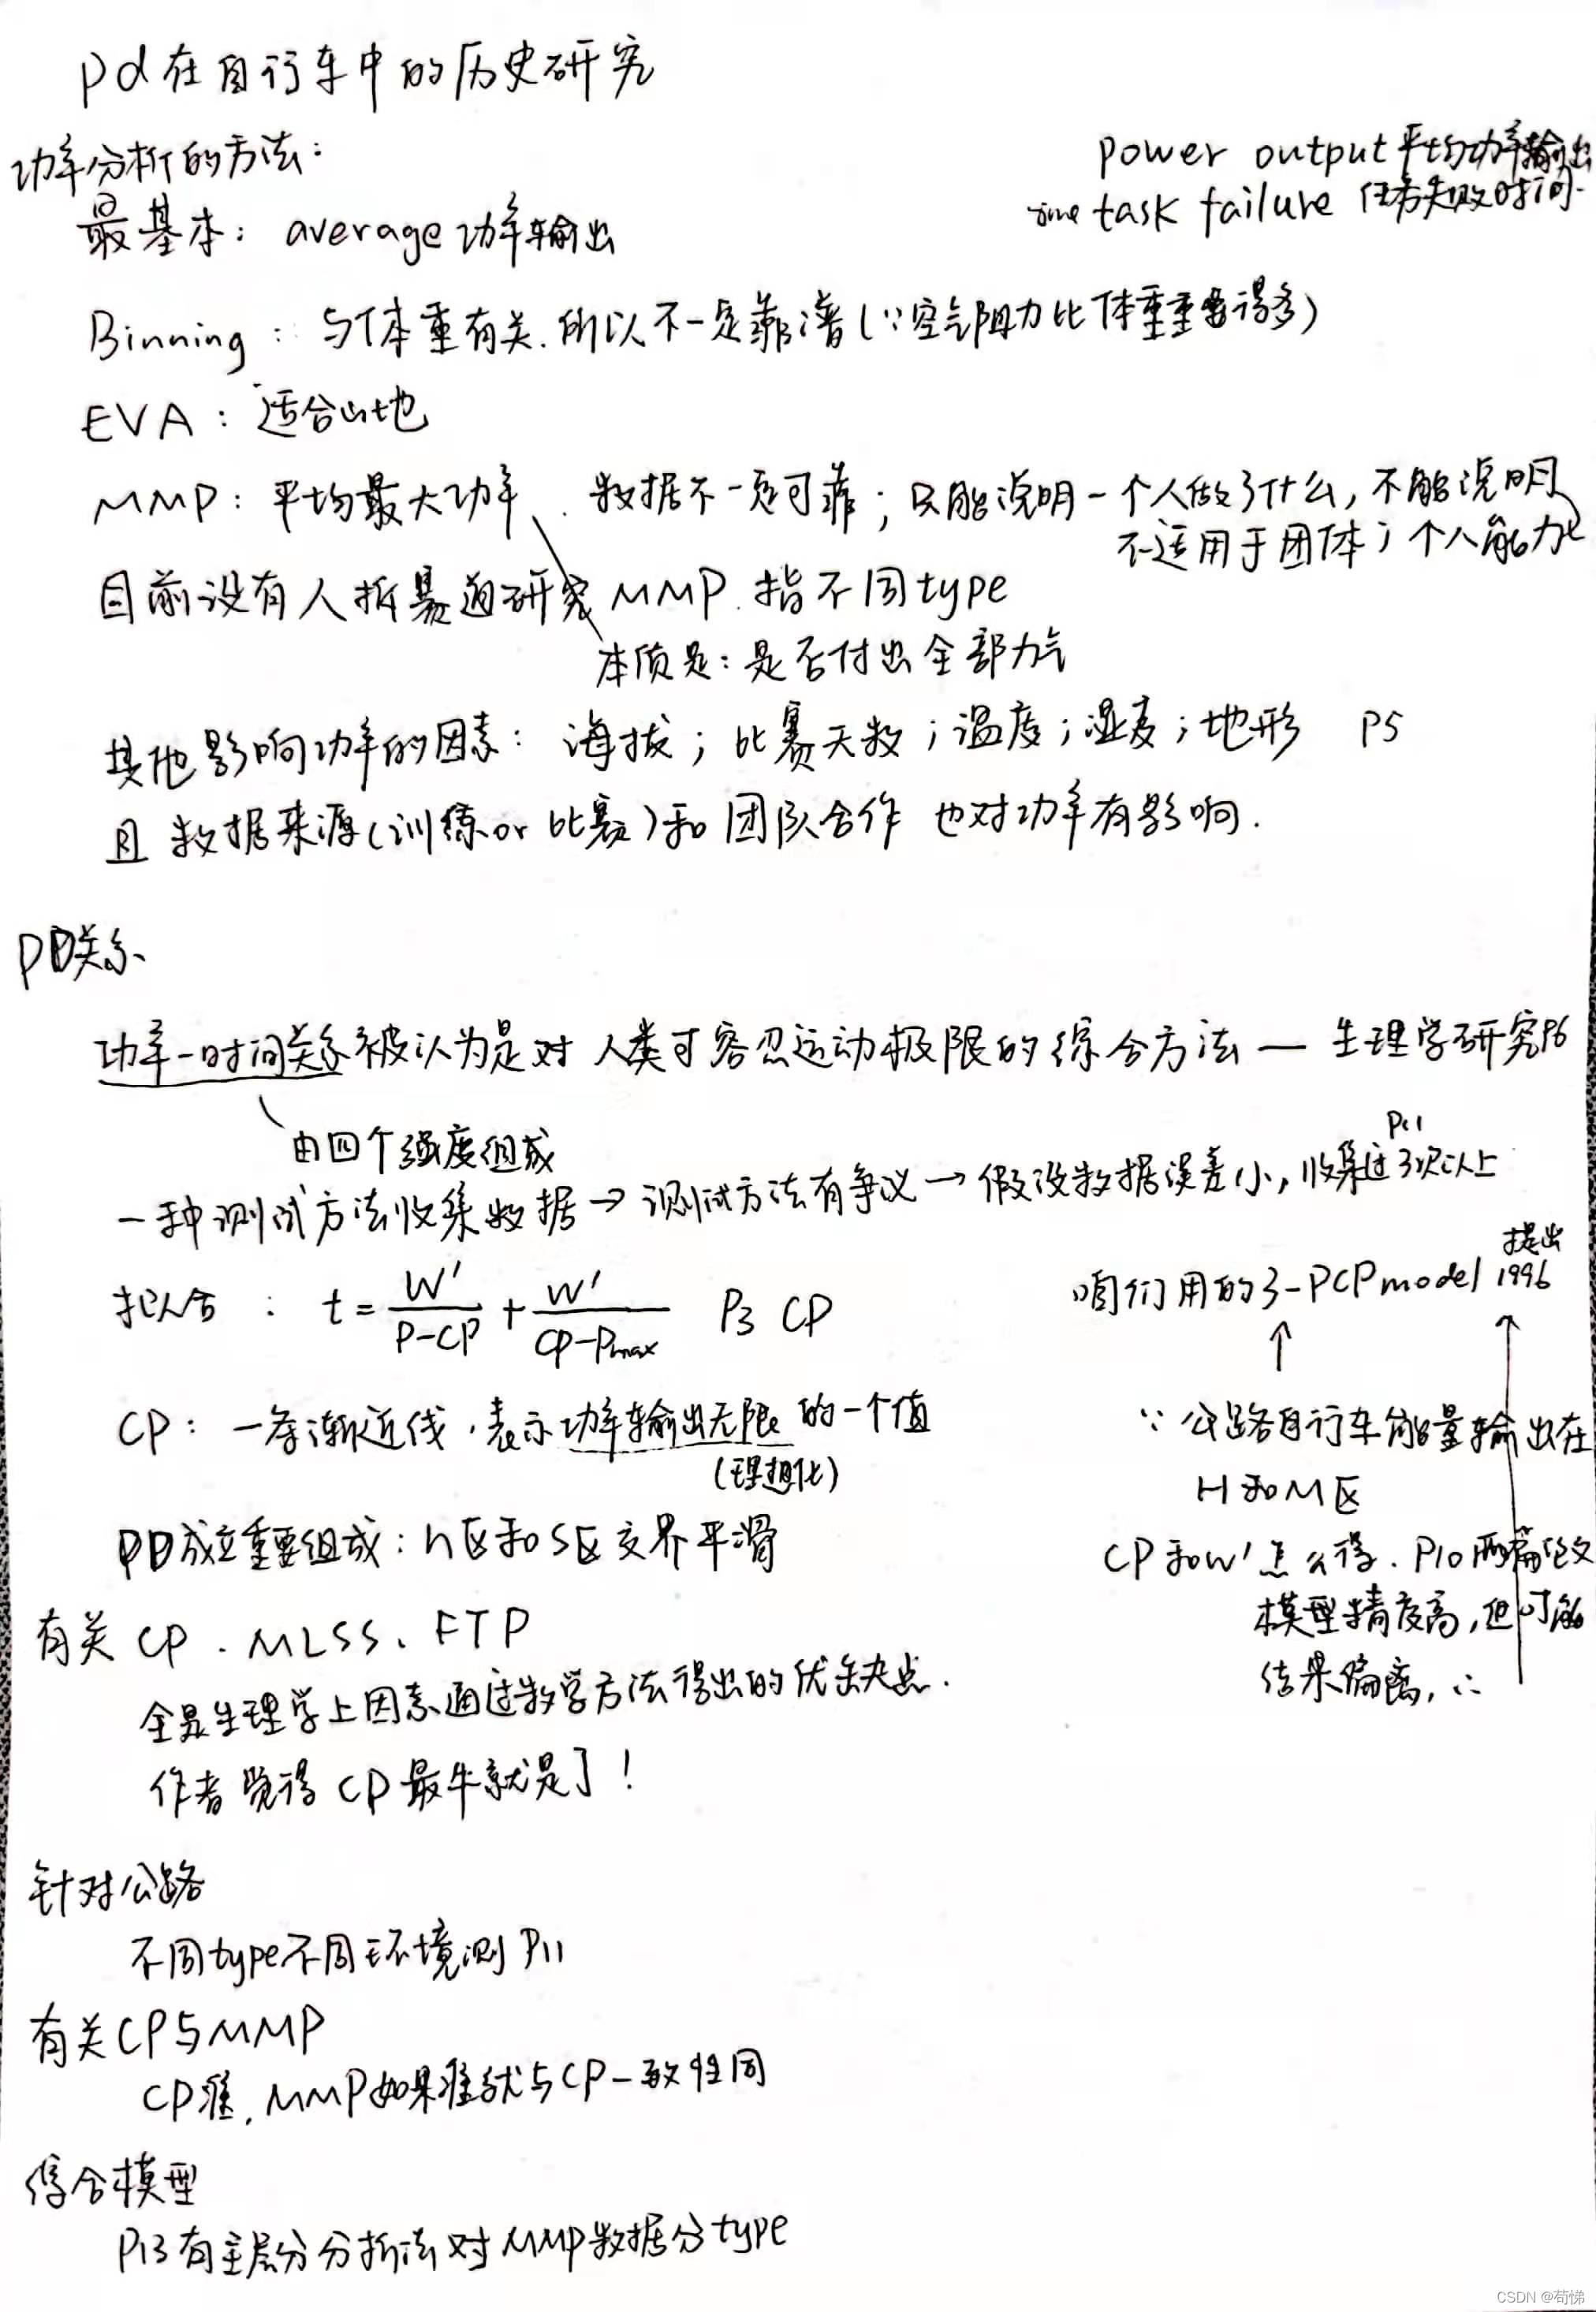 Pd在自行车中的历史研究
功率分析的方法：
power output 平均功率输出
time task failure 任务失败时间.
最基本：average 功率输出
Binning：与体重有关.所以不一定靠谱(∵空气阻力比体重重要得多)
EVA：适合山地
MMP：平均最大功率、数据不一定可靠；只能说明一个人做了什么，不能说明
不适用于团体；个人能力
目前没有人拆赛道研究MMP.指不同type
本质是：是否付出全部力气
其他影响功率的因素：海拔；比赛天数；温度；湿度；地形 P5
且数据来源(训练or比赛)和团队合作 也对功率有影响.
PD关系
功率-时间关系被认为是对人类可容忍运动极限的综合方法 — 生理学研究P6
由四个强度组成
一种测试方法收集数据→测试方法有争议→假设数据误差小，收集过3次以上
拟合： t = W'/(P-CP) + W'/(CP-Pmax) P3 CP
咱们用的3-PCPmodel 提出 1996
CP：一条渐近线，表示功率输出无限的一个值
(理想化)
∵公路自行车能量输出在
H和M区
PD成立重要组成：h区和S区交界平滑
CP和W'怎么得.P10两篇论文
模型精度高，但可能
结果偏离，∴
有关CP、MLSS、FTP
全是生理学上因素通过数学方法得出的优缺点.
作者觉得CP最牛就是了！
针对公路
不同type不同环境测P11
有关CP与MMP
CP准，MMP如果准就与CP一致性同
综合模型
P13有主成分分析法对MMP数据分type
CSDN @苟悌